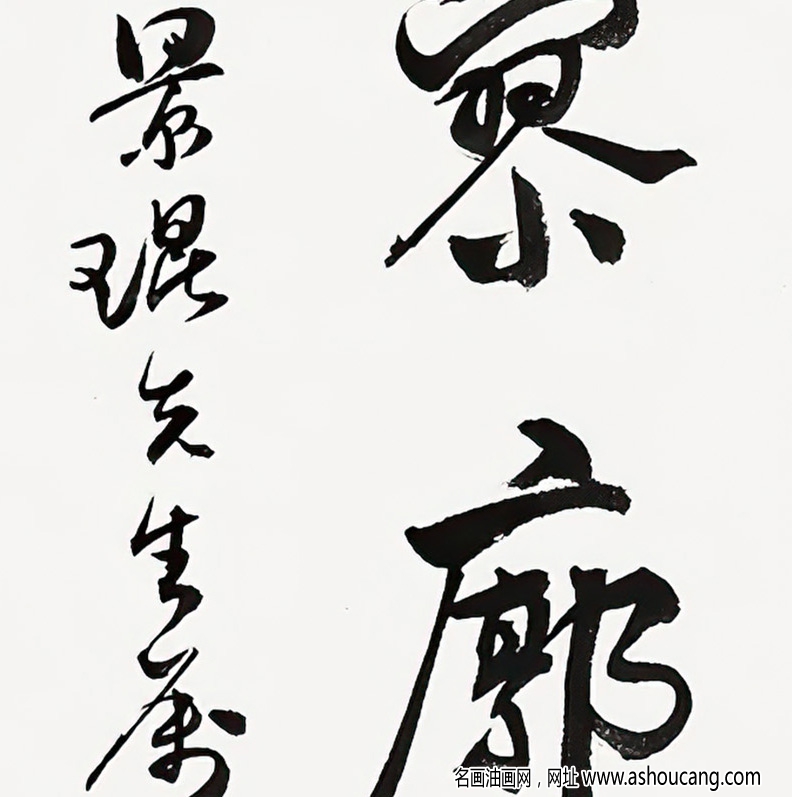 寥廓
景琨先生属
名画油画网，网址 www.ashoucang.com